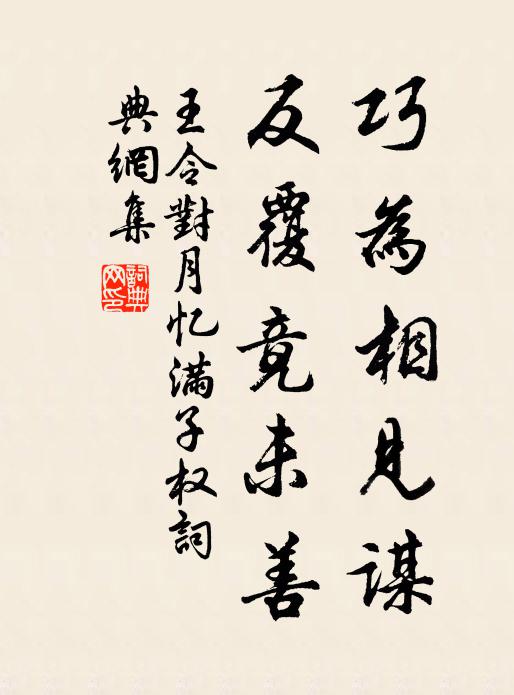 巧為相見謀
反覆竟未善
王令對月忆滿子权詞
典網集
詞典网印